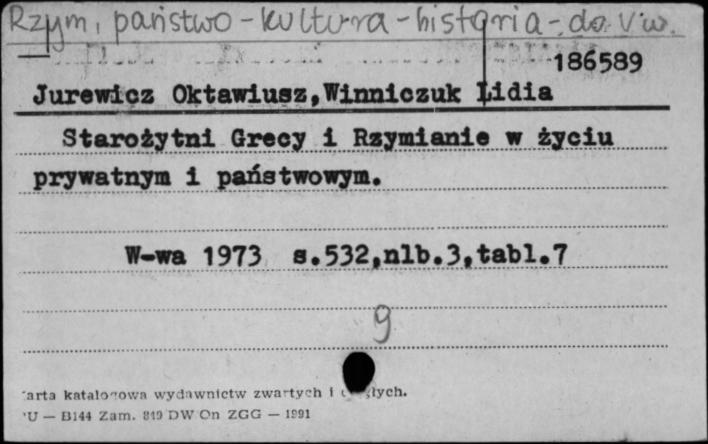 Rzym, państwo - kultura - historia - do V w.
186589
Jurewicz Oktawiusz,Winniczuk Lidia
Starożytni Grecy i Rzymianie w życiu
prywatnym i państwowym.
W-wa 1973 s.532,nlb.3,tabl.7
9
arta katalogowa wydawnictw zwartych i
U — B144 Zam. 849 DW On ZGG — 1991